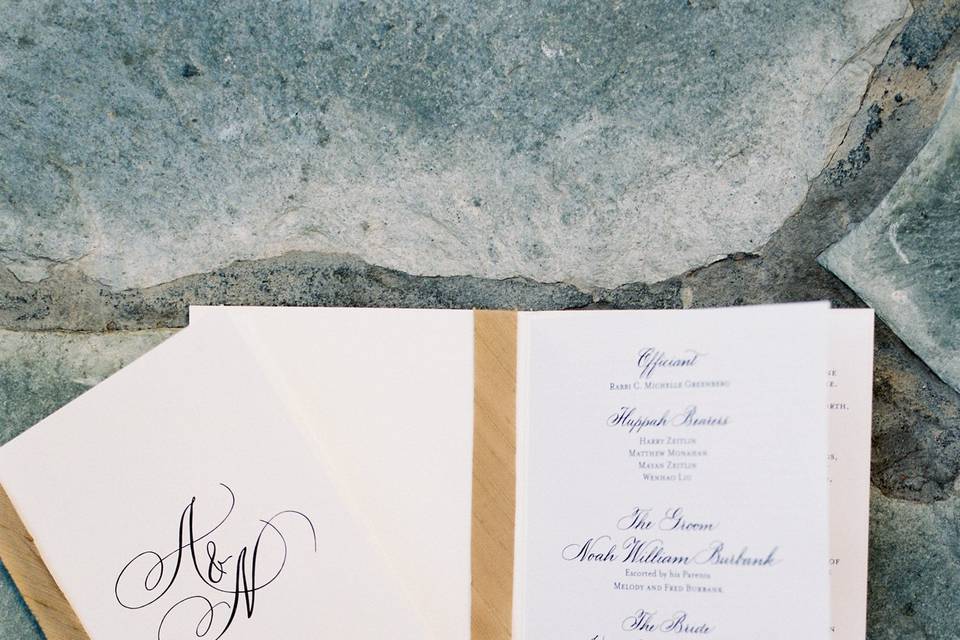 A & N
Officiant
RABBI C. MICHELLE GREENBERG
Huppah Bearers
HARRY ZEITLIN
MATTHEW MONAHAN
MAYAN ZEITLIN
WENHAO LIU
The Groom
Noah William Burbank
Escorted by his Parents
MELODY AND FRED BURBANK
The Bride